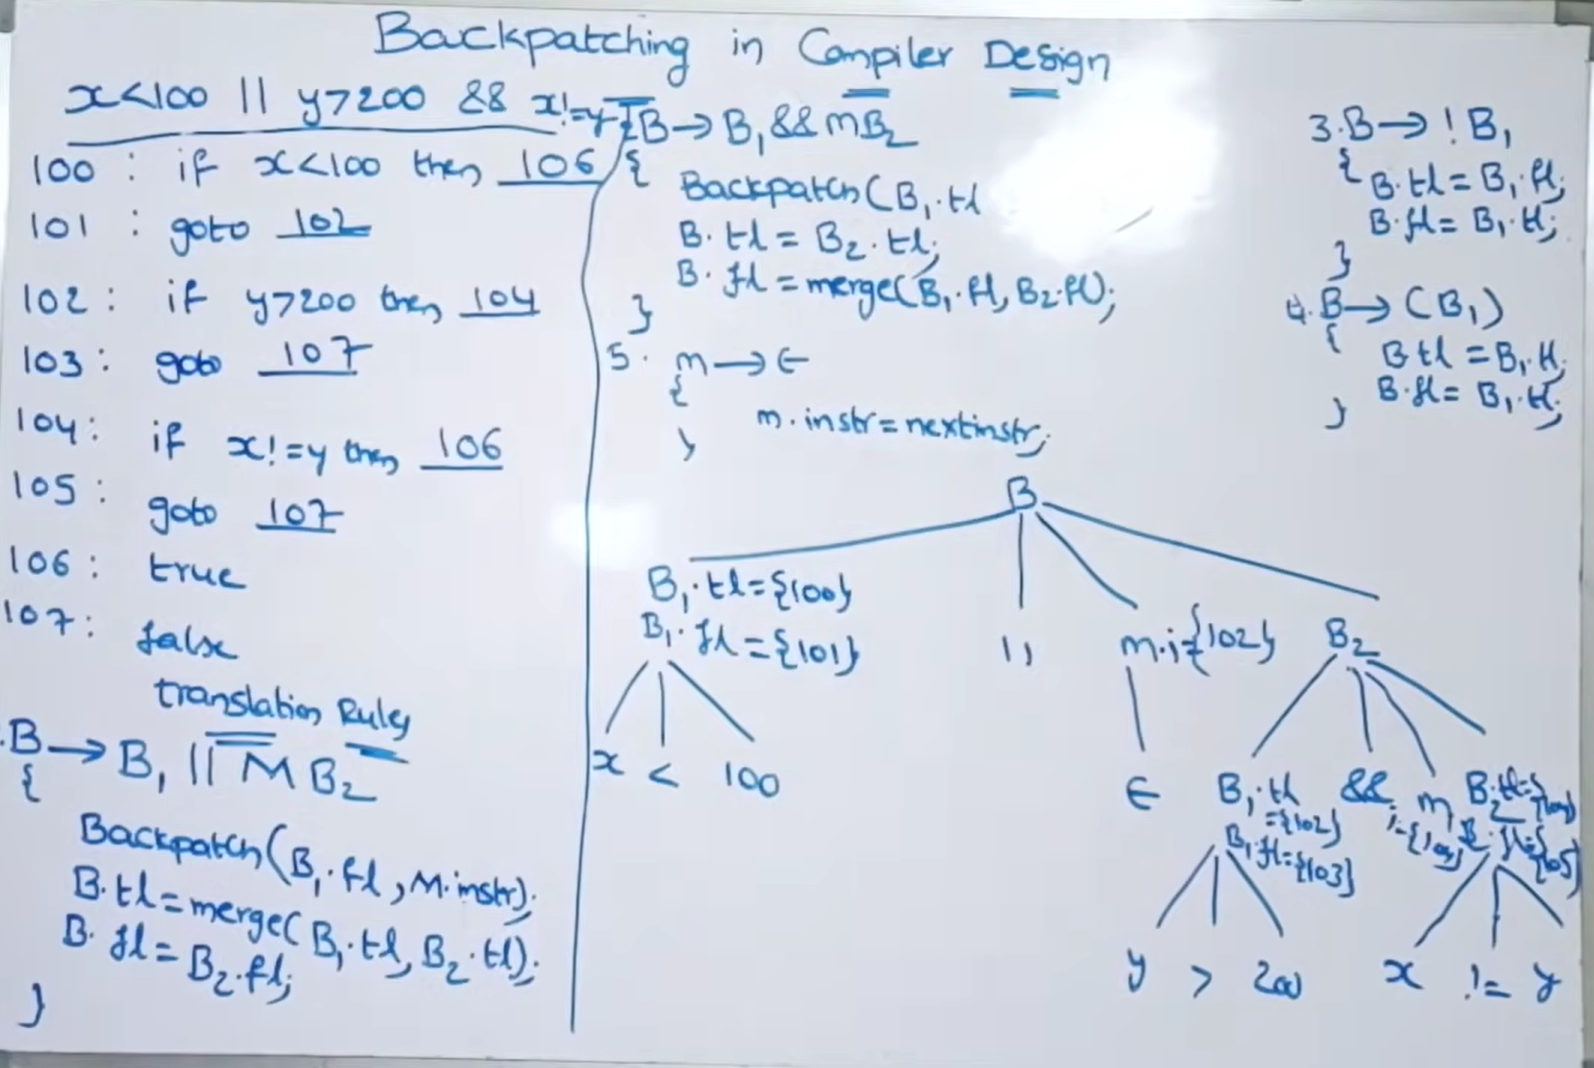 Backpatching in Compiler Design
x<100 || y>200 && x!=y
100 : if x<100 then 106
101 : goto 102
102 : if y>200 then 104
103 : goto 107
104 : if x!=y then 106
105 : goto 107
106 : true
107 : false
translation Rules
.B → B₁ || M B₂
{
Backpatch(B₁.fl, M.instr);
B.tl = merge(B₁.tl, B₂.tl);
B.fl = B₂.fl;
}
2 B → B₁ && m B₂
{
Backpatch(B₁.tl
B.tl = B₂.tl;
B.fl = merge(B₁.fl, B₂.fl);
}
5. m → ∈
{
m.instr = nextinstr;
}
3. B → ! B₁
{
B.tl = B₁.fl;
B.fl = B₁.tl;
}
4. B → (B₁)
{
B tl = B₁.tl;
B.fl = B₁.tl;
}
B
B₁.tl={100}
B₁.fl={101}
||
m.i={102}
B₂
x < 100
∈
B₁.tl
={102}
B₁.fl={103}
&&
m
B₂.tl=
B₂.fl={105}
y > 200
x != y